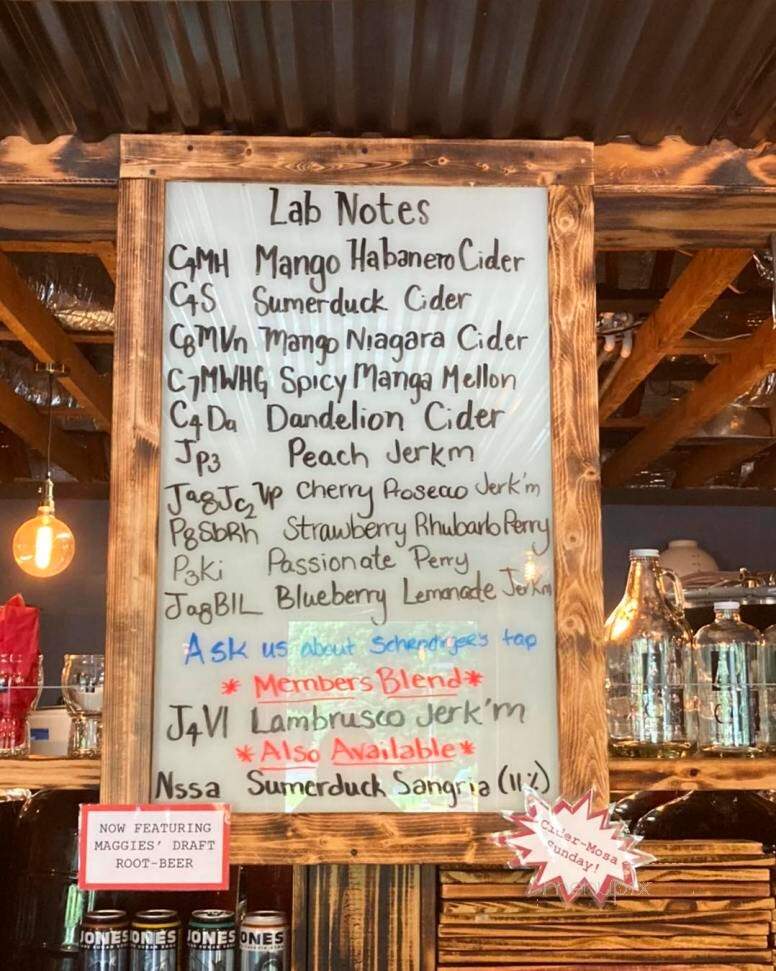 Lab Notes
C4MH Mango Habanero Cider
C4S Sumerduck Cider
C8MVn Mango Niagara Cider
C7MWHG Spicy Manga Mellon
C4Da Dandelion Cider
JP3 Peach Jerkm
Ja8Jc2Vp Cherry Prosecco Jerk'm
P8SbRh Strawberry Rhubarb Perry
P3Ki Passionate Perry
Ja8BlL Blueberry Lemonade Jerkm
Ask us about tap
* Members Blend *
J4Vl Lambrusco Jerk'm
* Also Available *
Nssa Sumerduck Sangria (11%)
NOW FEATURING
MAGGIES' DRAFT
ROOT-BEER
Cider-Mosa
Sunday!
JONES JONES JONES ONES